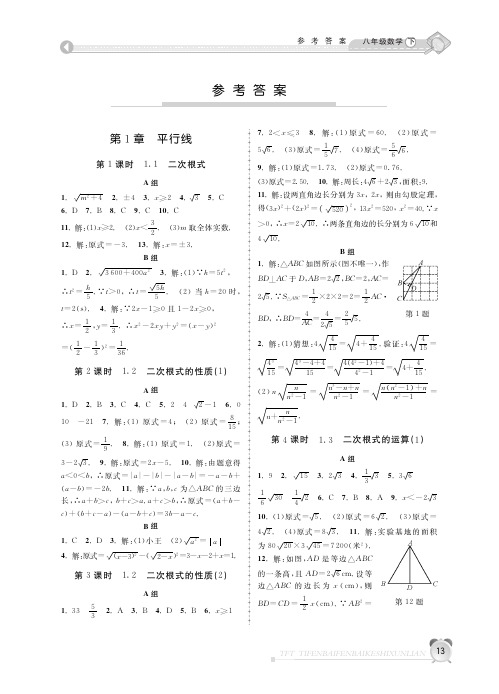 参 考 答 案 八年级数学 下
参 考 答 案
第1章 平行线
第1课时 1.1 二次根式
A组
1. √(m²+4) 2. ±4 3. x≥2 4. √3 5. C
6. D 7. B 8. C 9. C 10. C
11. 解:(1)x≥2. (2)x<3/2. (3)m取全体实数.
12. 解:原式=-3. 13. 解:x=±3.
B组
1. D 2. √(3600+400n²) 3. 解:(1)∵h=5t²,
∴t²=h/5. ∵t≥0,∴t=√(5h)/5. (2)当h=20时,
t=2(s). 4. 解:∵2x-1≥0且1-2x≥0,
∴x=1/2,y=1/3. ∴x²-2xy+y²=(x-y)²
=(1/2-1/3)²=1/36.
第2课时 1.2 二次根式的性质(1)
A组
1. D 2. B 3. C 4. C 5. 2 4 √2-1 6. 0
10 -21 7. 解:(1)原式=4; (2)原式=8/15;
(3)原式=1/9. 8. 解:(1)原式=1. (2)原式=
3-2√3. 9. 解:原式=2x-5. 10. 解:由题意得
a<0<b,∴原式=|a|-|b|-|a-b|=-a-b+
(a-b)=-2b. 11. 解:∵a,b,c为△ABC的三边
长,∴a+b>c,b+c>a,a+c>b,∴原式=(a+b-
c)+(b+c-a)-(a-b+c)=3b-a-c.
B组
1. C 2. D 3. 解:(1)小王 (2)√a²=|a|
4. 解:原式=√(x-3)²-(√(2-x))²=3-x-2+x=1.
第3课时 1.2 二次根式的性质(2)
A组
1. 33 5/3 2. A 3. B 4. D 5. B 6. x≥1
7. 2<x≤3 8. 解:(1)原式=60. (2)原式=
5√6. (3)原式=1/5√7. (4)原式=5/6√6.
9. 解:(1)原式=1.73. (2)原式=0.76.
(3)原式=2.50. 10. 解:周长:4√6+2√3,面积:9.
11. 解:设两直角边长分别为3x,2x,则由勾股定理,
得(3x)²+(2x)²=(√520)²,13x²=520,x²=40.∵x
>0,∴x=2√10.∴两条直角边的长分别为6√10和
4√10.
B组
1. 解:△ABC如图所示(图不唯一),作
BD⊥AC于D,AB=2√2,BC=2,AC=
2√5.∵S△ABC=1/2×2×2=2=1/2AC·
BD,∴BD=4/AC=4/(2√5)=2/5√5.
A
B
D
C
第1题
2. 解:(1)猜想:4√(4/15)=√(4+4/15),验证:4√(4/15)=
√(4³/15)=√((4³-4+4)/15)=√((4(4²-1)+4)/(4²-1))=√(4+4/15).
(2)n√(n/(n²-1))=√((n³-n+n)/(n²-1))=√((n(n²-1)+n)/(n²-1))=
√(n+n/(n²-1)).
第4课时 1.3 二次根的运算(1)
A组
1. 9 2. √15 3. 2√3 4. 1/3√3 5. 3√6
1/6√30 1/4√2 6. C 7. B 8. A 9. x<-2√3
10. (1)原式=√5. (2)原式=6√2. (3)原式=
4√2. (4)原式=8√3. 11. 解:实验基地的面积
为80√20×3√45=7200(米²).
12. 解:如图,AD是等边△ABC
的一条高,且AD=2√6cm.设等
边△ABC的边长为x(cm),则
BD=CD=1/2x(cm).∵AB²=
A
B
D
C
第12题
TFT TIFENBAIFENBAIKESHIXUNLIAN
13